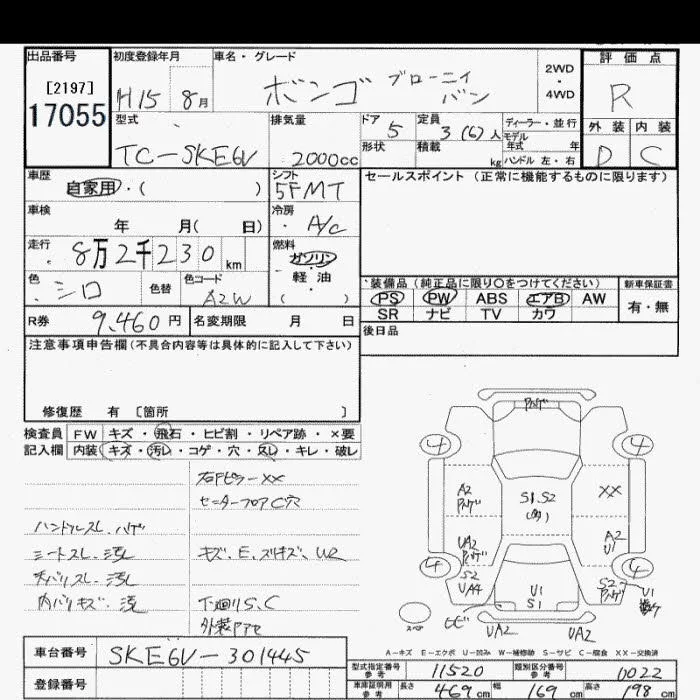 出品番号
[2197]
17055
初度登録年月
H15 8月
車名・グレード
ボンゴ ブローニィ
バン
2WD
・
4WD
評価点
R
外装 内装
D C
型式
TC-SKE6V
排気量
2000cc
ドア
5
定員
3(6)人
ディーラー・並行
モデル
年式 年
形状
積載
kg
ハンドル 左・右
車歴
自家用・( )
シフト
5FMT
セールスポイント(正常に機能するものに限ります)
車検
年 月( 日)
冷房
A/C
走行
8万2千230km
燃料
ガソリン
・
軽・油
( )
色
シロ
色替
色コード
A2W
装備品(純正品に限り○をつけてください)
新車保証書
PS PW ABS エアB AW
SR ナビ TV カワ
有・無
R券
9,460円
名変期限 月 日
後日品
注意事項申告欄(不具合内容等は具体的に記入して下さい)
修復歴 有 [箇所 ]
検査員
記入欄
FW キズ・飛石・ヒビ割・リペア跡・×要
内装 キズ・汚レ・コゲ・穴・スレ・キレ・破レ
右Fピラーxx
センターフロアC穴
ハンドルスレ・ハゲ
シートスレ・汚レ
キズ、E、スリキズ、U2
天バリスレ・汚レ
内バリキズ・汚
下廻りS、C
外装アアセ
ハゲ
4
4
A2
ハゲ
S1、S2
(多)
XX
UA2
ハゲ
A2
U1
4
4
S2
UA4
U1
S1
S2
ハゲ
U1
スペア
ヒビ
UA2
UA2
A-キズ E-エクボ U-凹み W-補修跡 S-サビ C-腐食 XX-交換済
車台番号
SKE6V-301445
登録番号
型式指定番号
参考
11520
類別区分番号
参考
0022
車庫証明用
参考
長さ
469cm
幅
169cm
高さ
198cm